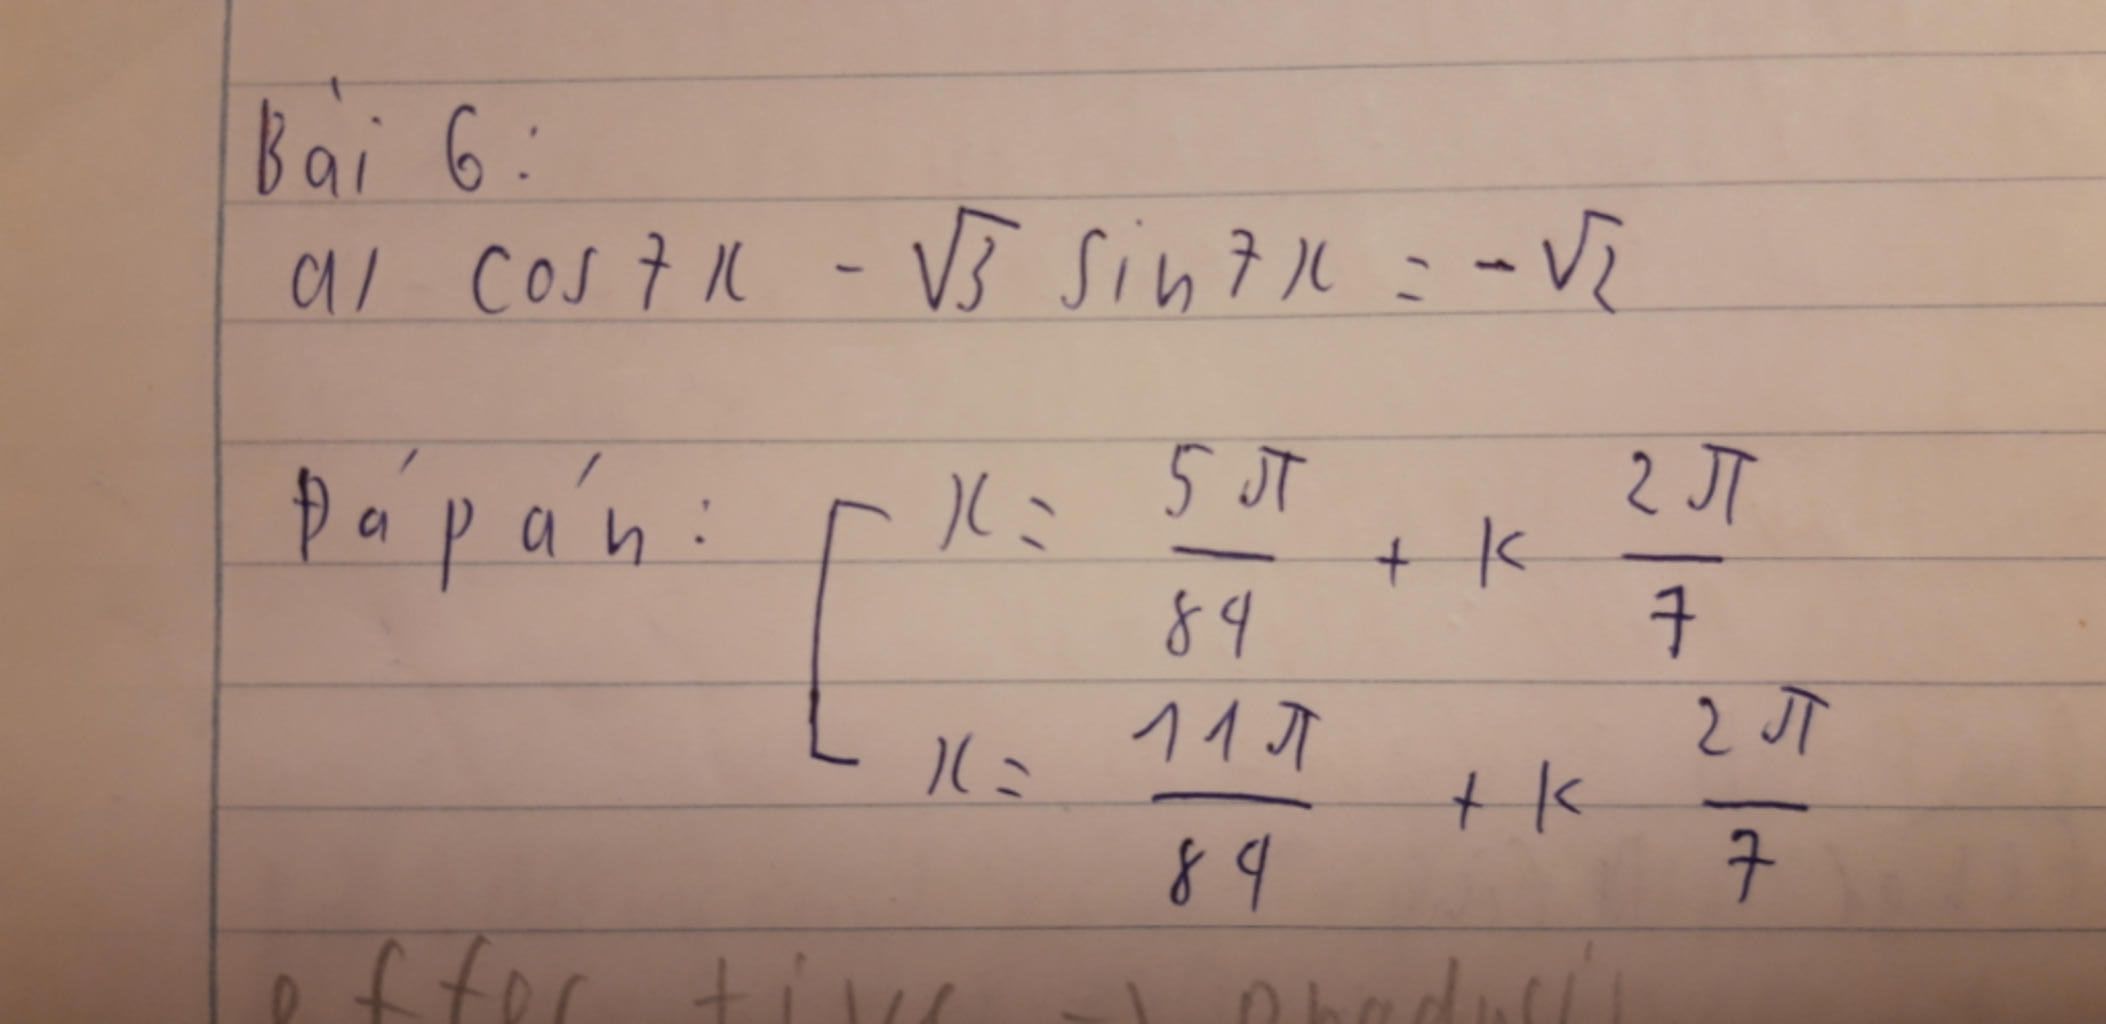 Bài 6:
a) cos7x - √3 sin7x = -√2
Đáp án: [ x = 5π/84 + k 2π/7
x = 11π/84 + k 2π/7